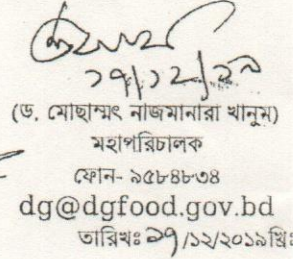 ১৭/১২/১৯
(ড. মোছাম্মৎ নাজমানারা খানুম)
মহাপরিচালক
ফোন- ৯৫৮৪৮৩৪
dg@dgfood.gov.bd
তারিখঃ ১৭/১২/২০১৯খ্রিঃ